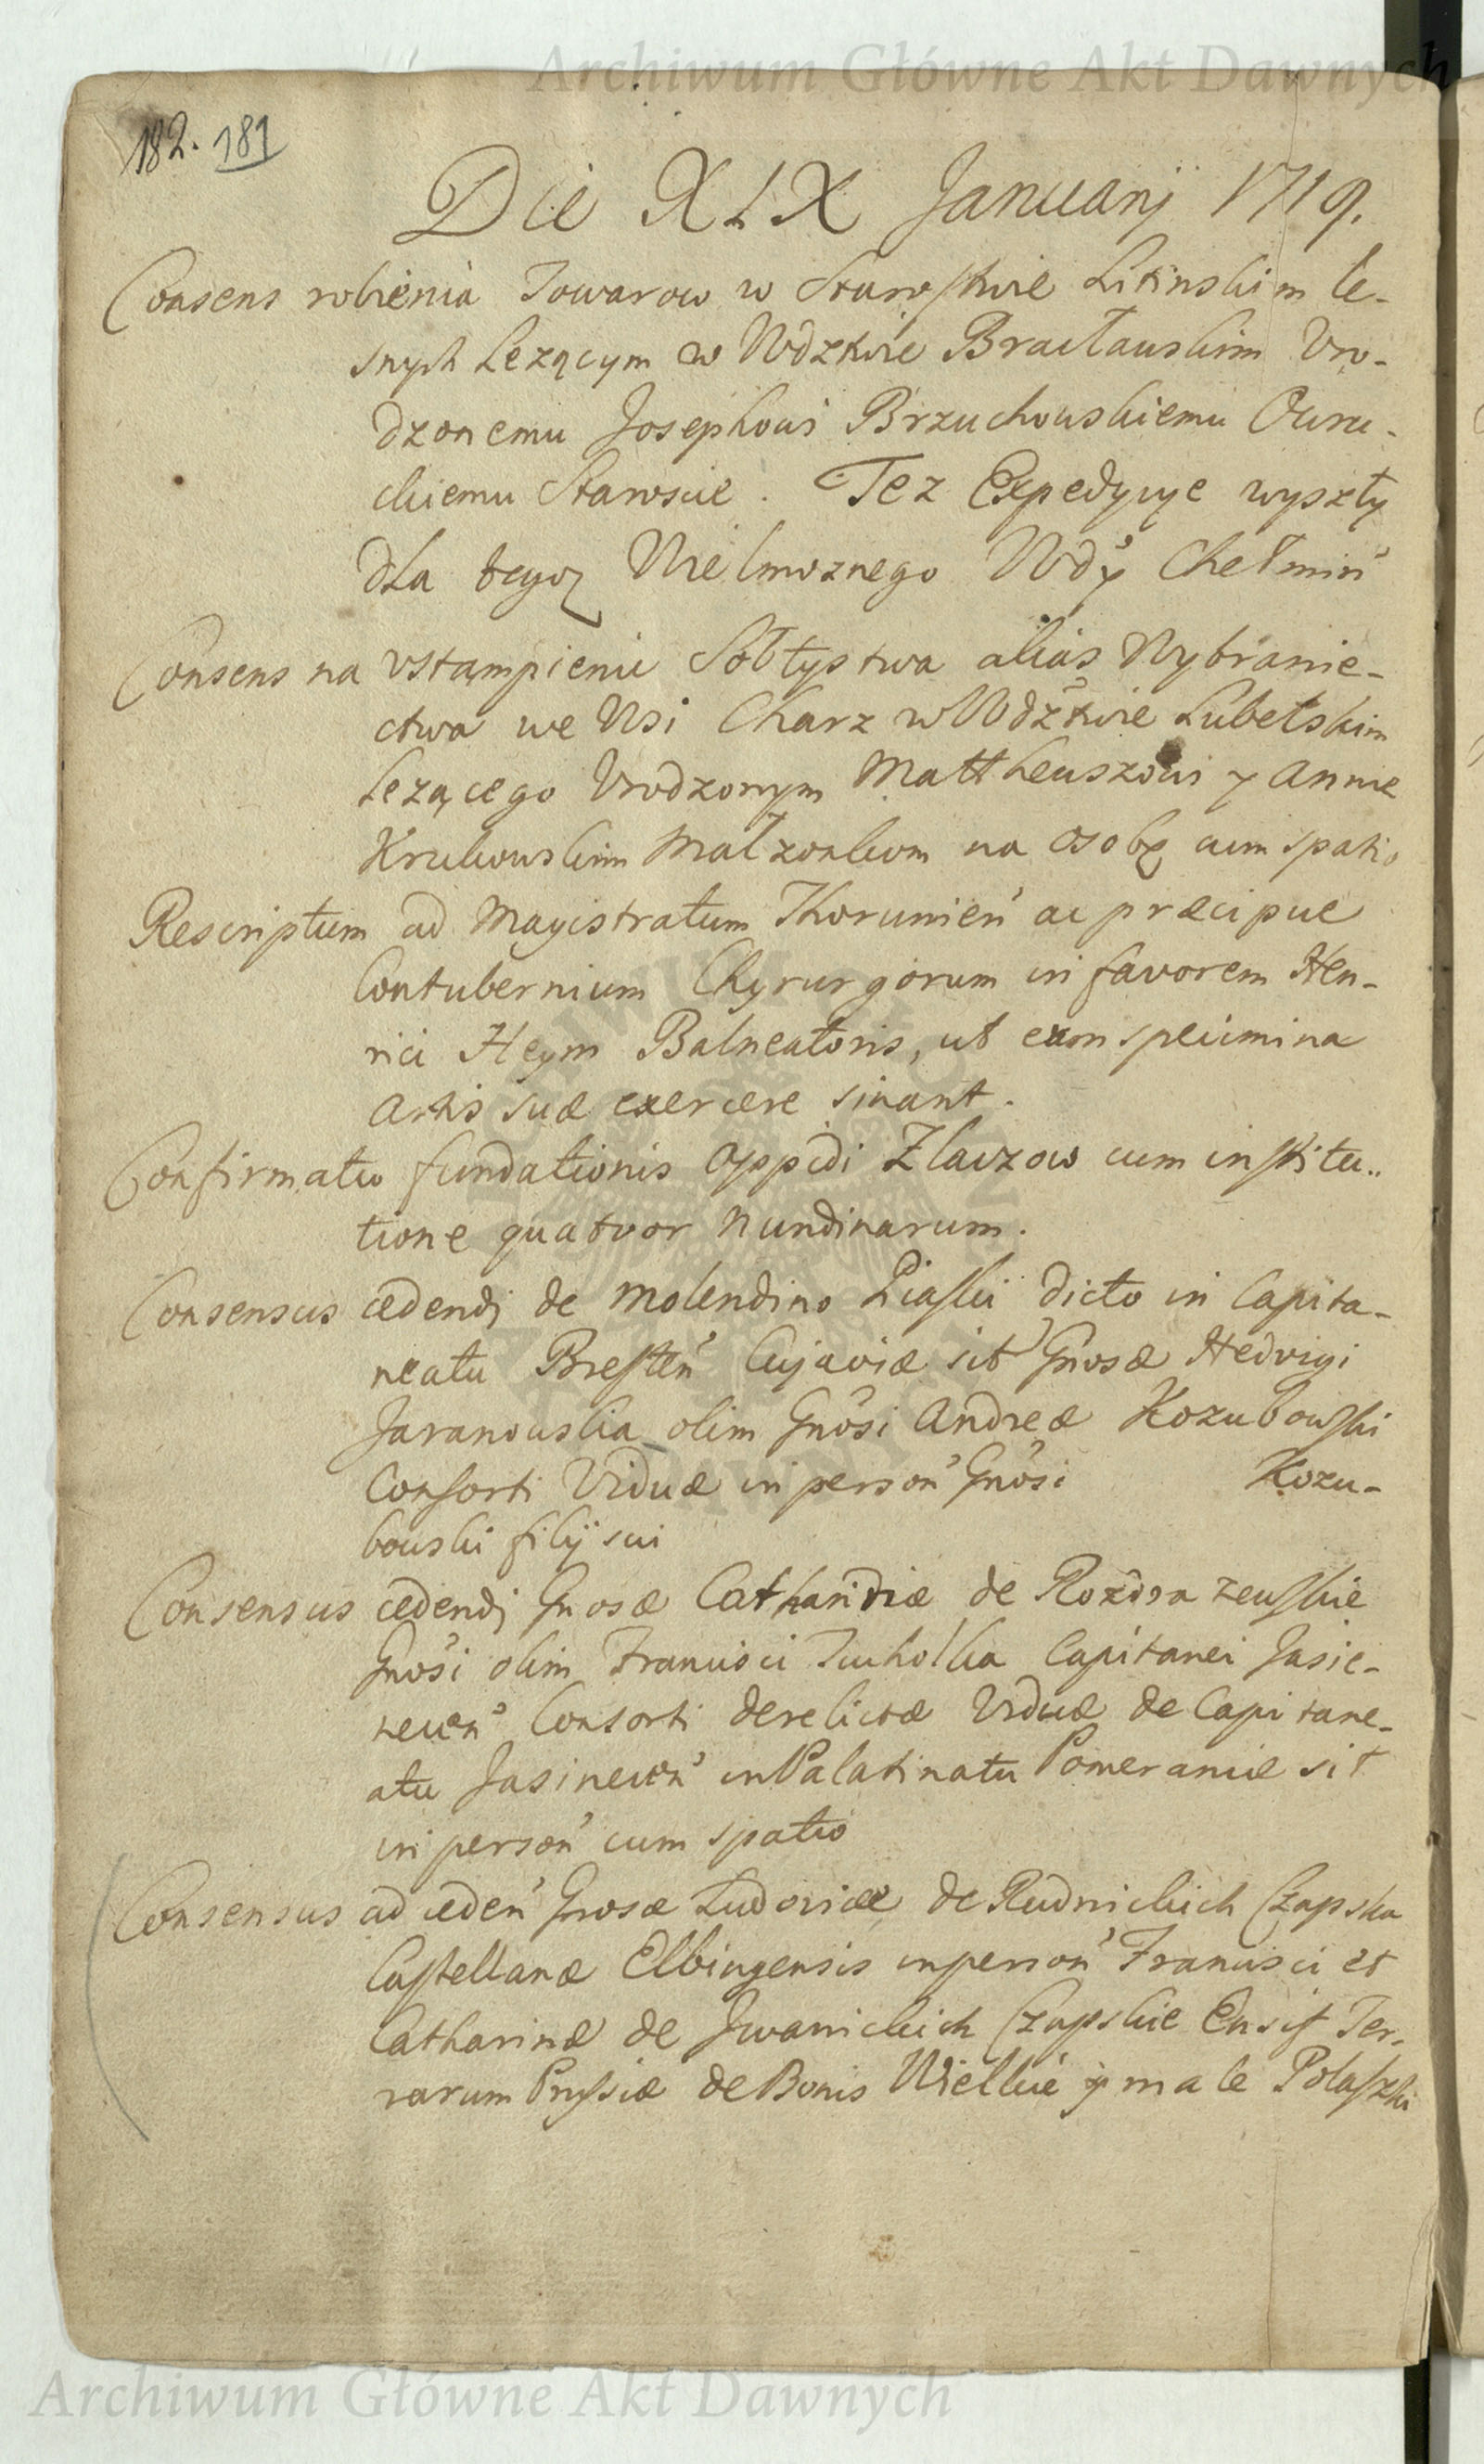 Archiwum Główne Akt Dawnych
182. 181
Die XIX Januarij 1719.
Consens robienia Towarow w Starostwie Litinskim le-
snych Lezącym w Wdztwie Bracławskim Vro-
dzonemu Josephowi Brzuchowskiemu Owru-
ckiemu Staroscie. Tez Expedycye wyszły
dla tegoz Wielmoznego Wdy Chełmiń
Consens na vstąmpieniu Sołtystwa alias Wybranie-
ctwa we Wsi Charz w Wdztwie Lubelskim
lezącego Vrodzonym Mattheuszowi y Annie
Krukowskim Małzonkom na osobę cum spatio
Rescriptum ad Magistratum Thorunień ac præcipue
Contubernium Chyrurgorum in favorem Hen-
rici Heym Balneatoris, ut eum specimina
Artis suæ exercere sinant.
Confirmatio fundationis oppidi Zlawzow cum institu-
tione quatvor Nundinarum.
Consensus cedendi de Molendino Piaski dicto in Capita-
neatu Bresteń Cujaviæ sit Gnosæ Hedvigi
Jaranowskia olim Gnosi Andreæ Kozubowski
Consorti Viduæ in personň Gnosi Kozu-
bowski filij sui
Consensus cedendi Gnosæ Catharinæ de Rozdrazewskie
Gnosi olim Francisci Tucholka Capitanei Jasie-
necen Consorti derelictæ Viduæ de Capitane-
atu Jasinecen in Palatinatu Pomeraniæ sit
in person cum spatio
Consensus ad ceden Gnosæ Ludovicæ de Rudnickich Czapska
Castellanæ Elbingensis in person Francisci et
Catharinæ de Jwanickich Czapskie Ensif Ter-
rarum Prussiæ de Bonis Wielkie y male Polaszki
Archiwum Główne Akt Dawnych